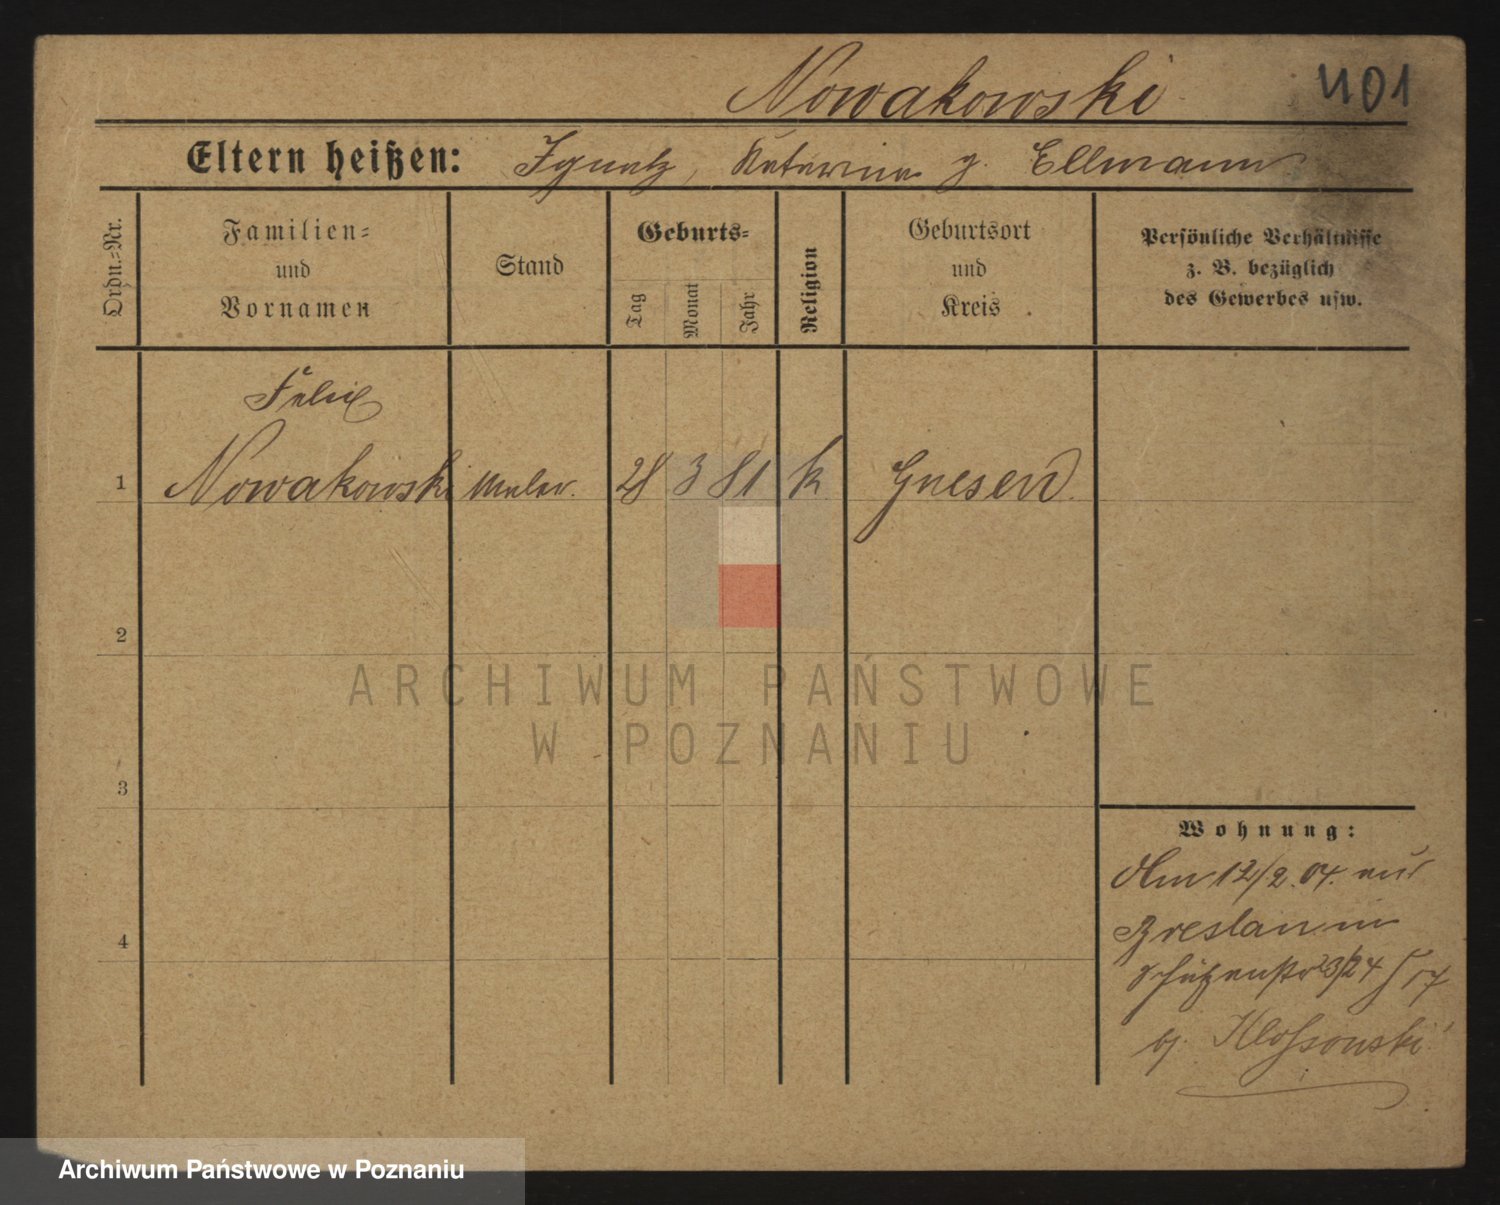 Nowakowski 401
Eltern heißen: Ignatz, Katarina g. Ellmann
Ordn.-Nr.
Familien-
und
Vornamen
Stand
Geburts-
Tag
Monat
Jahr
Religion
Geburtsort
und
Kreis
Persönliche Verhältnisse
z. B. bezüglich
des Gewerbes usw.
Felix
1 Nowakowski Maler. 28 3 81 k Gnesen
2
ARCHIWUM PAŃSTWOWE
W POZNANIU
3
Wohnung:
Am 12/2.04. aus
Breslau in
Schützenstr 23/24
4
b. Klossowski
Archiwum Państwowe w Poznaniu